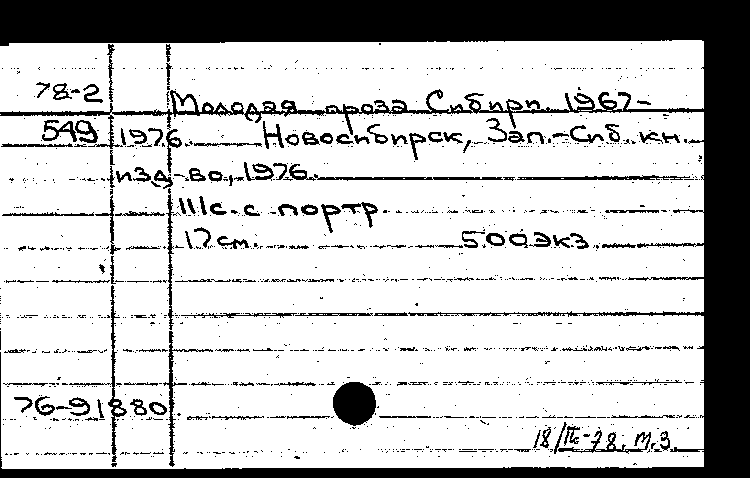 78-2 Молодая проза Сибири. 1967-
549 1976. Новосибирск, Зап.-Сиб. кн.
изд-во, 1976.
111с. с портр.
17 см. 500экз.
76-91880.
18/IX-78. М.З.